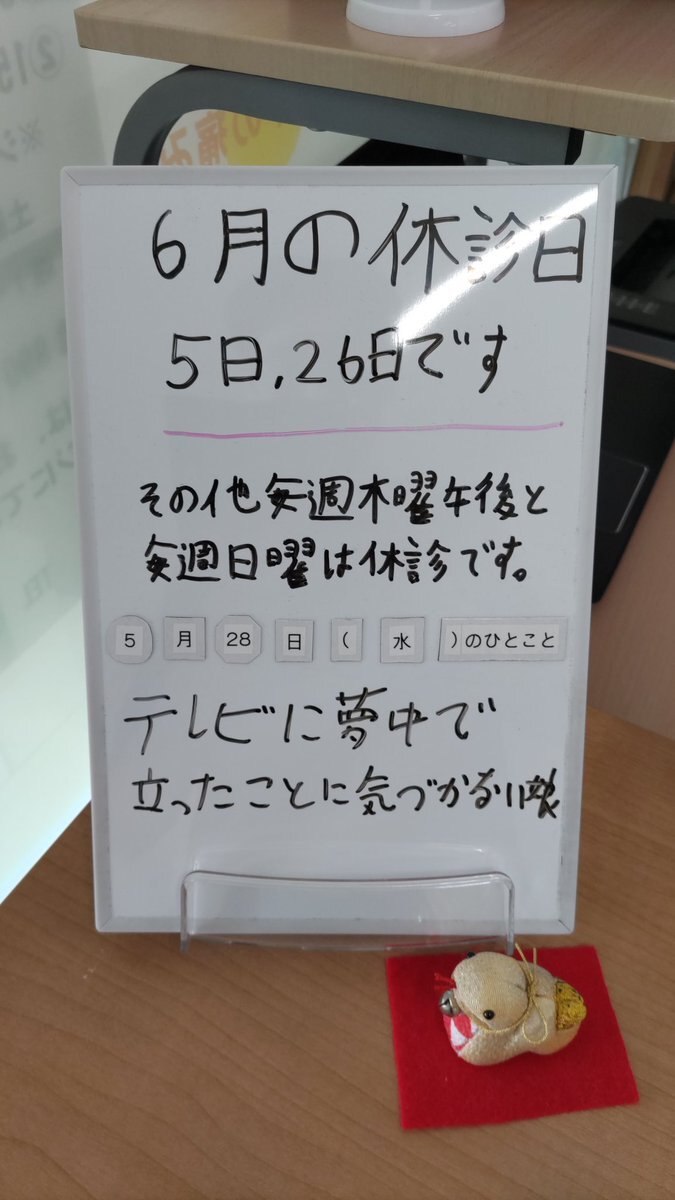 6月の休診日
5日,26日です
その他毎週木曜午後と
毎週日曜は休診です。
5月28日(水)のひとこと
テレビに夢中で
立ったことに気づかない娘
の痛み